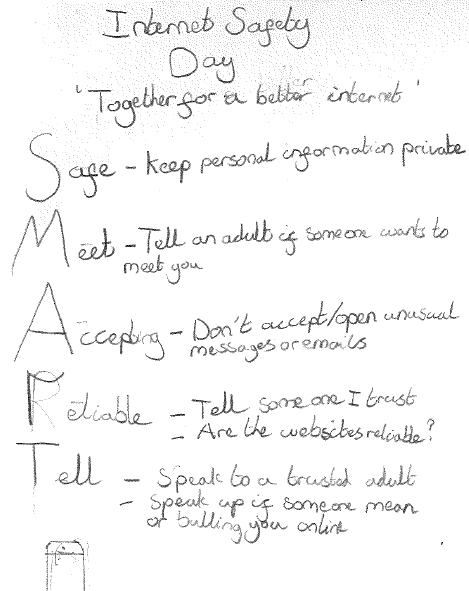 Internet Safety
Day
'Together for a better internet'
Safe - Keep personal information private
Meet - Tell an adult if someone wants to
meet you
Accepting - Don't accept/open unusual
messages or emails
Reliable - Tell someone I trust
- Are the websites reliable?
Tell - Speak to a trusted adult
- Speak up if someone mean
or bulling you online